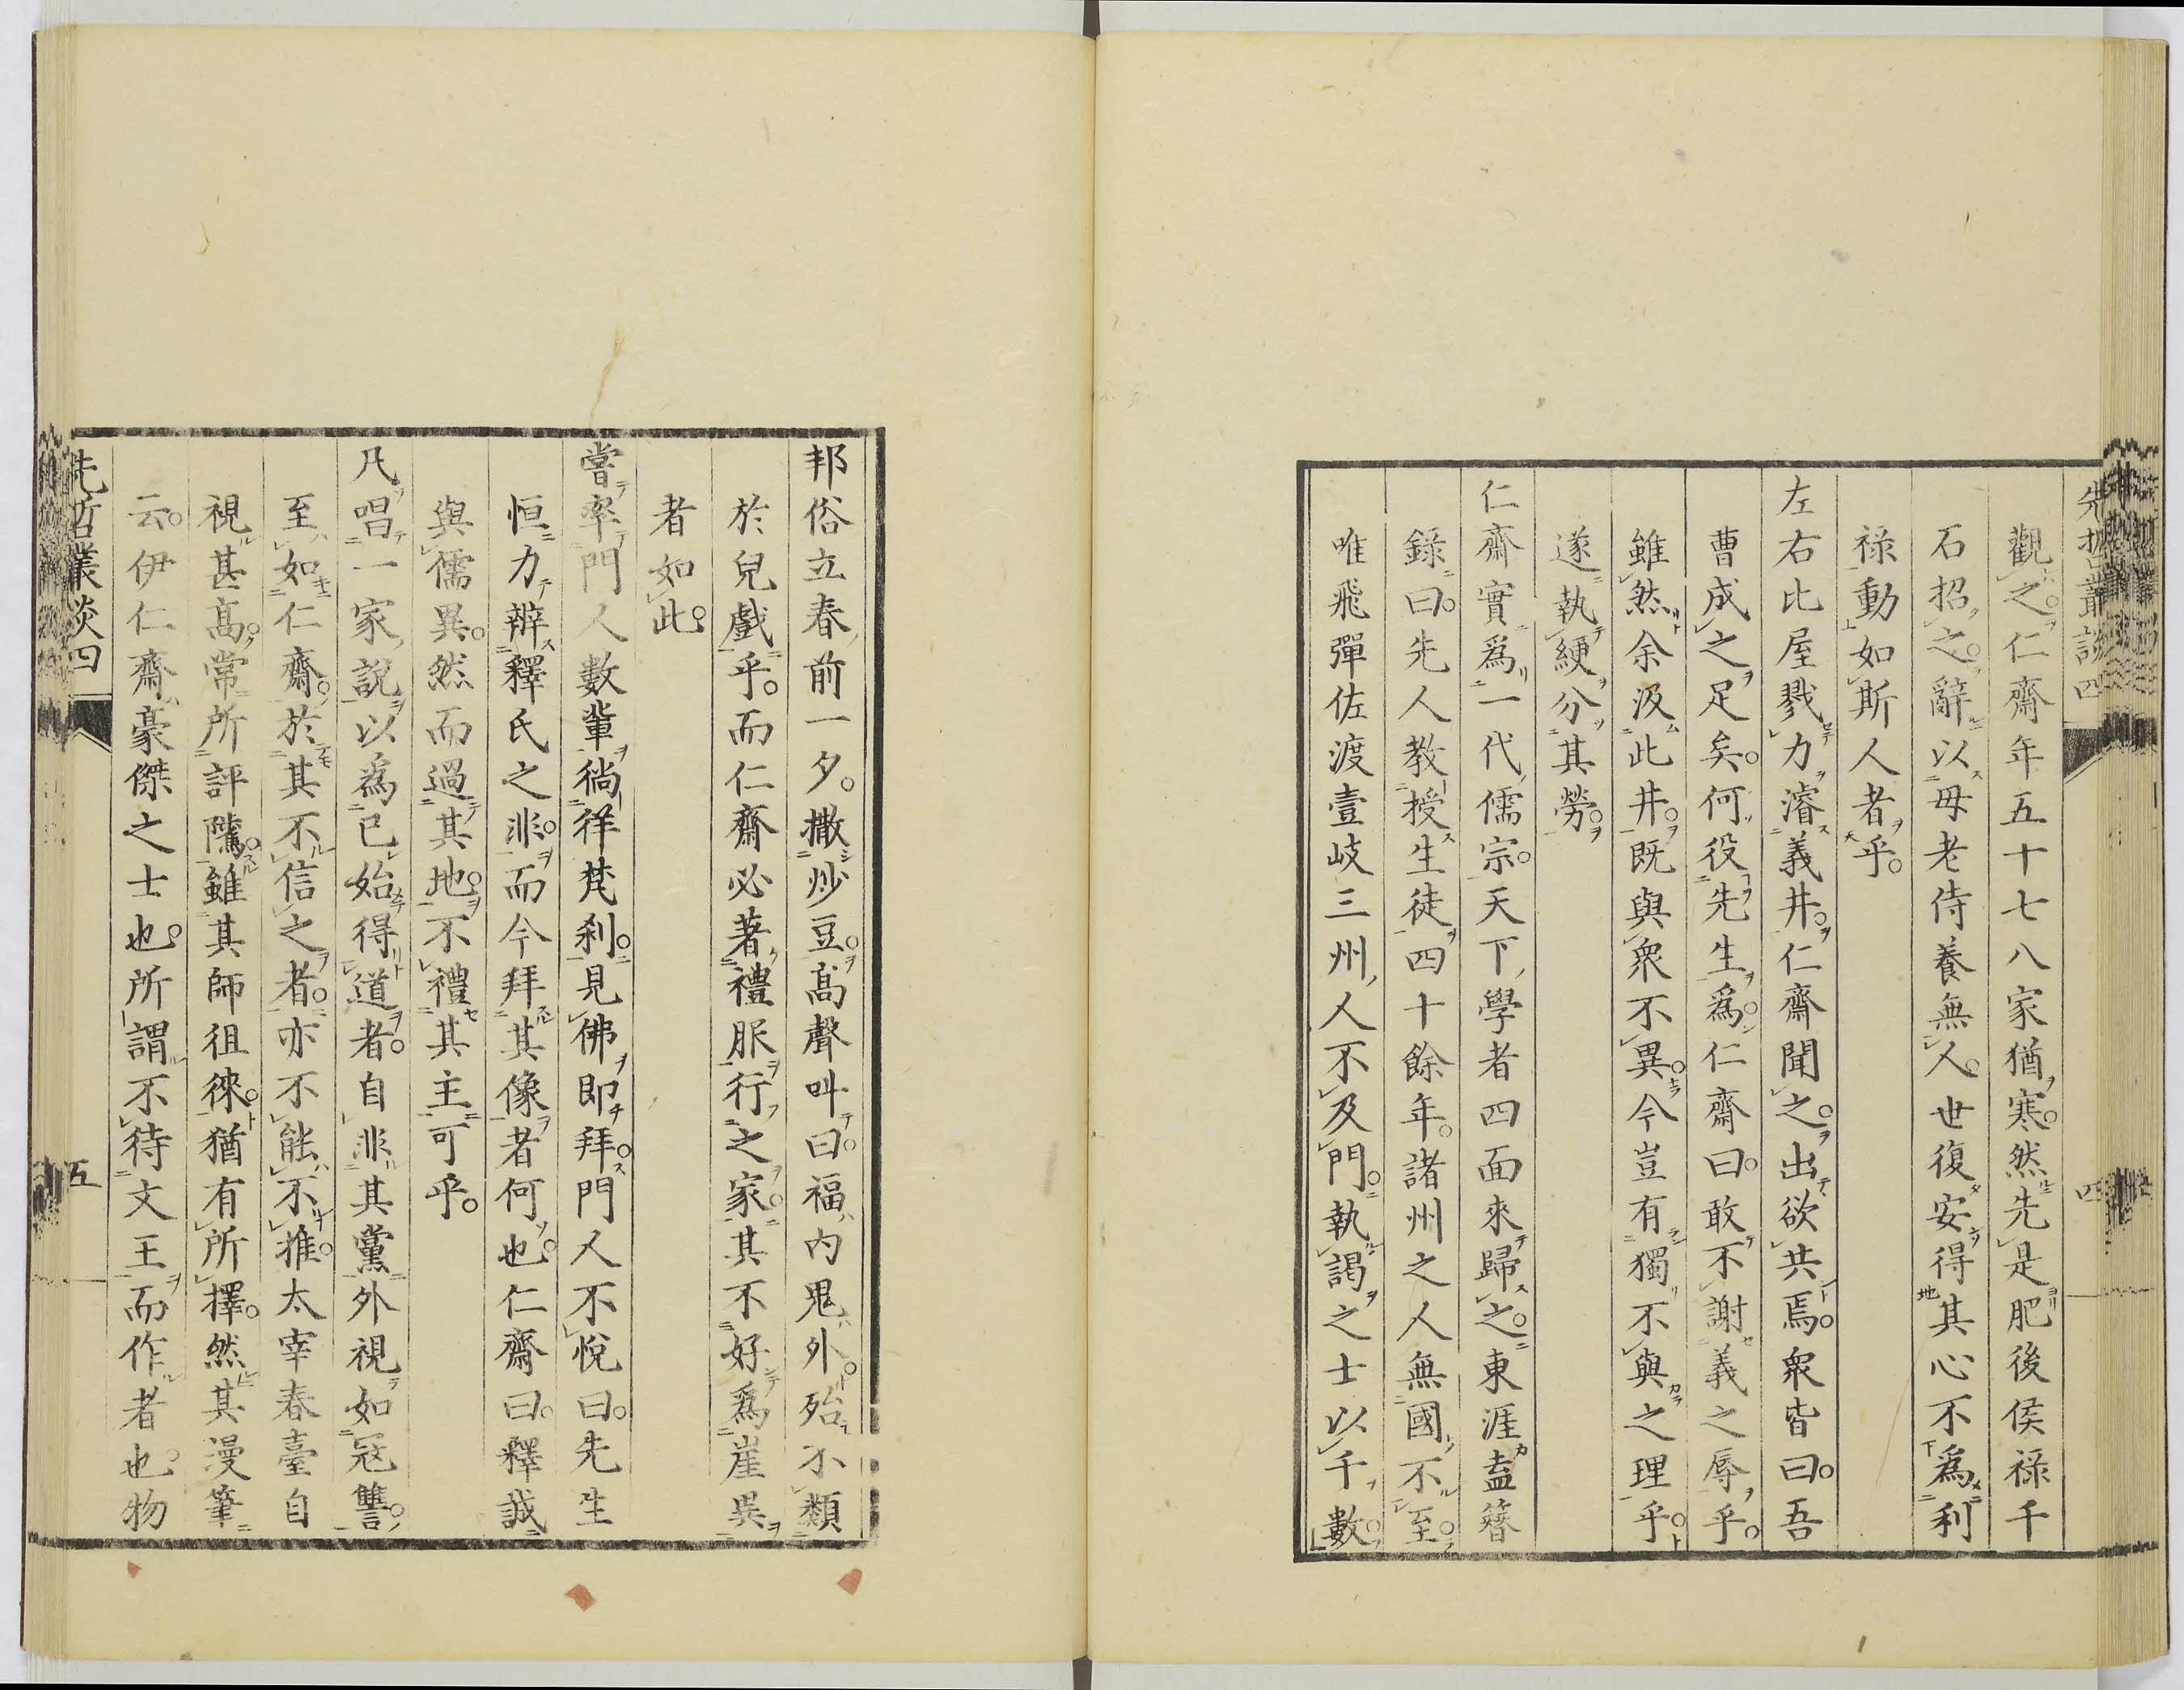 先哲叢談四
觀之仁齋年五十七八家猶寒然先是肥後侯祿千
石招之辭以母老侍養無人世復安得其心不為利
祿動如斯人者乎
左右比屋戮力濬義井仁齋聞之出欲共焉衆皆曰吾
曹成之足矣何役先生為仁齋曰敢不謝義之辱乎
雖然余汲此井既與衆不異今豈有獨不與之理乎
遂執綆分其勞
仁齋實為一代儒宗天下學者四面來歸之東涯盍簪
錄曰先人教授生徒四十餘年諸州之人無國不至
唯飛彈佐渡壹岐三州人不及門執謁之士以千數
四
邦俗立春前一夕撒炒豆高聲叫曰福內鬼外殆不類
於兒戲乎而仁齋必著禮服行之家其不好為崖異
者如此
嘗率門人數輩徜徉梵刹見佛即拜門人不悅曰先生
恒力辯釋氏之非而今拜其像者何也仁齋曰釋誠
與儒異然而過其地不禮其主可乎
凡唱一家說以為己始得道者自非其黨外視如寇讐
至如仁齋於其不信之者亦不能不推太宰春臺自
視甚高常所評隲雖其師徂徠猶有所擇然其漫筆
云伊仁齋豪傑之士也所謂不待文王而作者也物
先哲叢談四
五